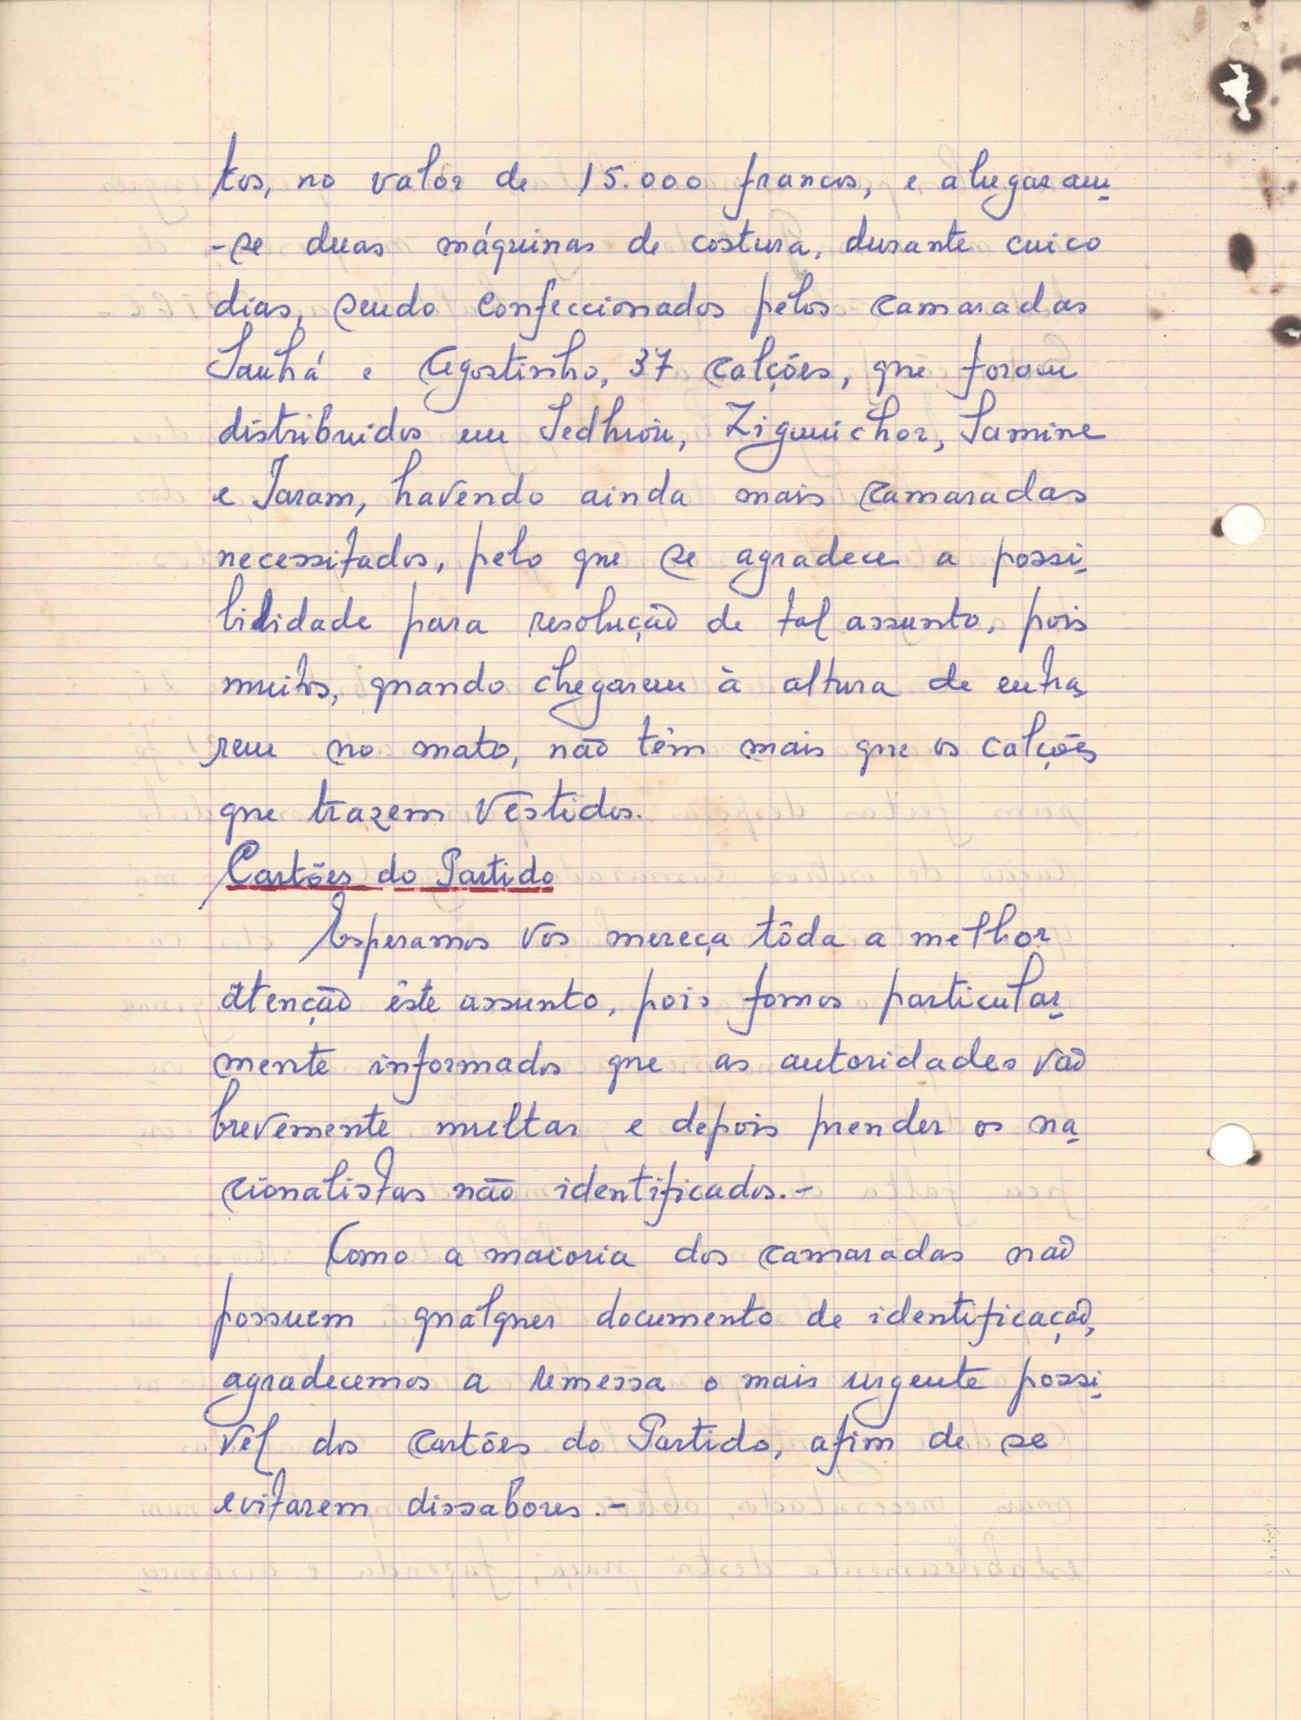 tos, no valôr de 15.000 francos, e alugaram
-se duas máquinas de costura, durante cinco
dias, sendo confeccionados pelos camaradas
Sanhá e Agostinho, 37 calções, que foram
distribuidos em Sedhiou, Ziguichor, Samine
e Taram, havendo ainda mais camaradas
necessitados, pelo que se agradece a possi-
bilidade para resolução de tal assunto, pois
muitos, quando chegarem à altura de entra-
rem no mato, não têm mais que os calções
que trazem vestidos.
Cartões do Partido
Esperamos vos mereça tôda a melhor
atenção êste assunto, pois fomos particular-
mente informados que as autoridades vão
brevemente multar e depois prender os na-
cionalistas não identificados.-
Como a maioria dos camaradas não
possuem qualquer documento de identificação,
agradecemos a remessa o mais urgente possi-
vel dos cartões do Partido, afim de se
evitarem dissabores.-